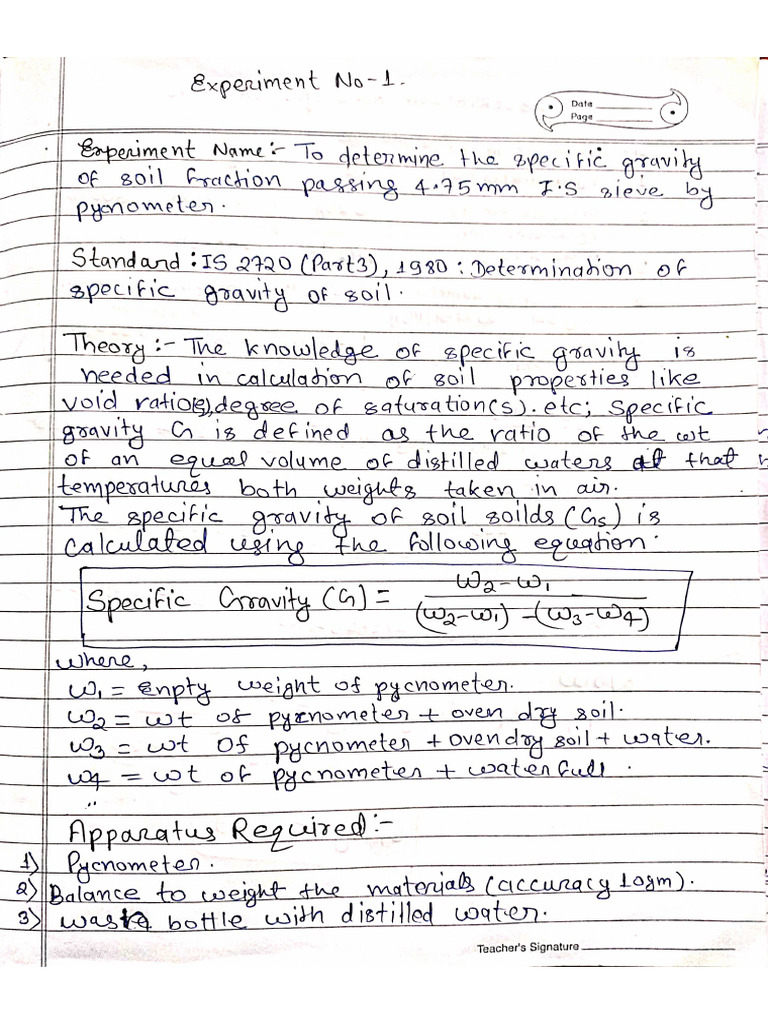 Experiment No-1.
Date
Page
Experiment Name:- To determine the specific gravity
of soil fraction passing 4.75mm I.S sieve by
pycnometer.
Standard: IS 2720 (Part3), 1980: Determination of
specific gravity of soil.
Theory:- The knowledge of specific gravity is
needed in calculation of soil properties like
void ratio(s), degree of saturation(s). etc; Specific
gravity G is defined as the ratio of the wt
of an equal volume of distilled waters at that
temperatures both weights taken in air.
The specific gravity of soil soilds (Gs) is
calculated using the following equation.
Specific Gravity (G) = W2-W1 / (W2-W1) - (W3-W4)
where,
W1 = Enpty weight of pycnometer.
W2 = wt of pycnometer + oven dry soil.
W3 = wt Of pycnometer + oven dry soil + water.
W4 = wt of pycnometer + water full.
Apparatus Required:-
1) Pycnometer.
2) Balance to weight the materials (accuracy 10gm).
3) bottle with distilled water.
Teacher's Signature